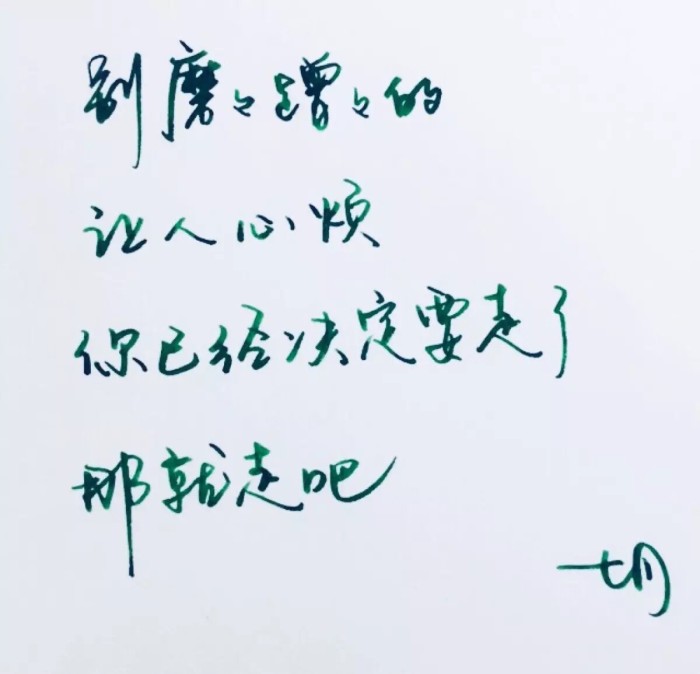 别磨々蹭々的
让人心烦
你已经决定要走了
那就走吧
七月